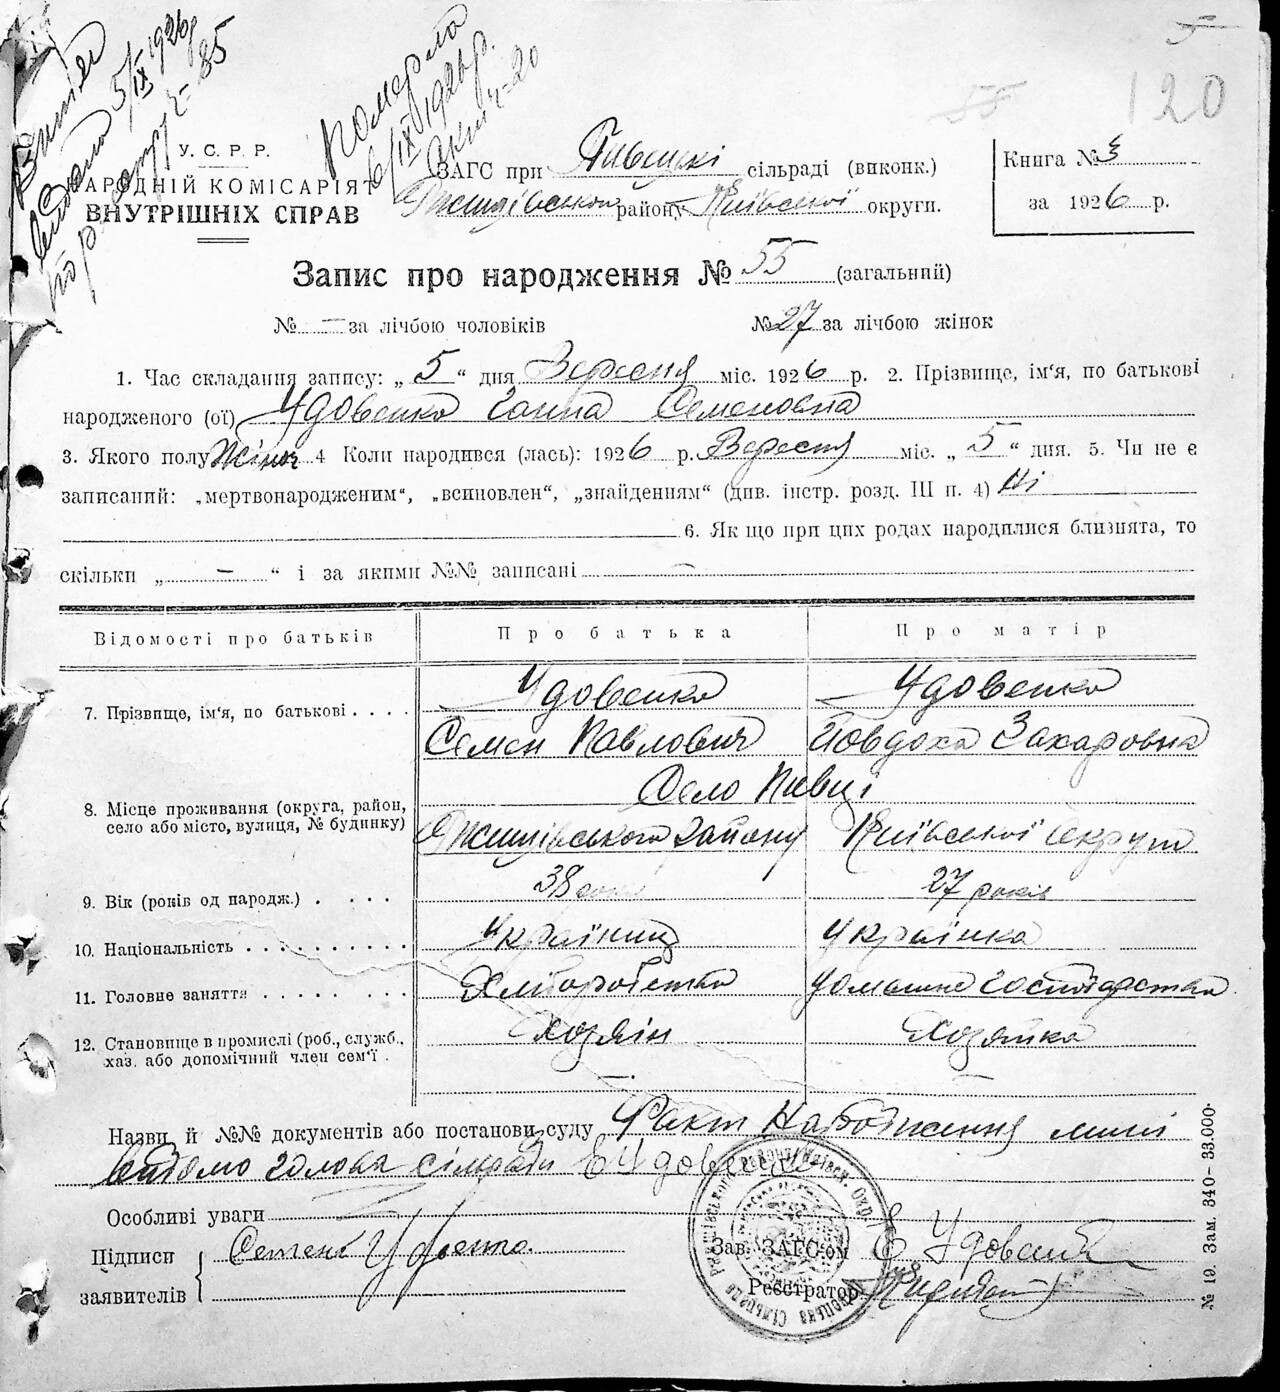 Витяг
видано 5/IX 1926 р.
Померла
6/IX 1926 р.
Акт ч-20
120
55
У. С. Р. Р.
НАРОДНІЙ КОМІСАРІЯТ
ВНУТРІШНІХ СПРАВ
ЗАГС при Пивецькі сільраді (виконк.)
Ржищівського району Київської округи.
Книга № 3
за 1926 р.
Запис про народження № 55 (загальний)
№ — за лічбою чоловіків
№ 27 за лічбою жінок
1. Час складання запису: „ 5 “ дня Вересня міс. 1926 р. 2. Прізвище, ім‘я, по батькові
народженого (ої) Удовенко Ганна Семеновна
3. Якого полу Жіноч 4 Коли народився (лась): 1926 р. Вересня міс. „ 5 “ дня. 5. Чи не є
записаний: „мертвонародженим“, „всиновлен“, „знайденням“ (див. інстр. розд. III п. 4) Ні
6. Як що при цих родах народилися близнята, то
скільки „ — “ і за якими №№ записані —
Відомості про батьків
Про батька
Про матір
7. Прізвище, ім‘я, по батькові . . . .
Удовенко
Удовенко
Семен Павлович
Йовдоха Захаровна
8. Місце проживання (округа, район,
село або місто, вулиця, № будинку)
Село Пивці
Ржищівського району
Київської Округи
9. Вік (років од народж.) . . . .
38 роки
27 років
10. Національність . . . . . . . . . .
Українець
Українка
11. Головне заняття . . . . . . . . .
Хліборобство
домашнє господарство
12. Становище в промислі (роб., служб.,
хаз. або допомічний член сем‘ї .
Хозяїн
Хозяйка
—
—
Назви й №№ документів або постанови суду Факт народження мині
відомо голова сільради Є Удовенко
Особливі уваги
Підписи
заявителів
Семен Удовенко
Зав. ЗАГС-ом Є Удовенко
Реєстратор
№ 19. Зам. 340—33.000.